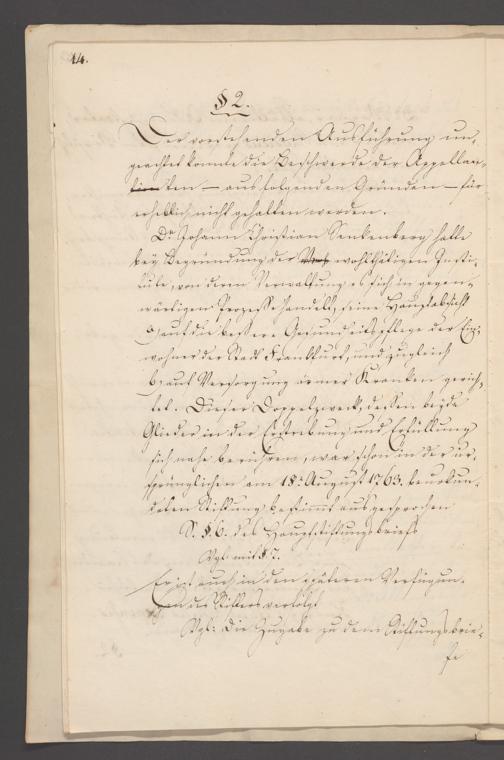 14.
§ 2.
Der vorstehenden Ausführung un-
geachtet konnte die Beschwerde der Appellan-
ten — aus folgenden Gründen — für
erheblich nicht gehalten werden.
Dr Johann Christian Senkenberg hatte
bey Begründung der wohlthätigen Insti-
tute, von deren Verwaltung es sich im gegen-
wärtigen Prozesse handelt, seine Hauptabsicht
a) auf die bessere Gesundheitspflege der Ein-
wohner der Stadt Frankfurt, und zugleich
b) auf Versorgung armer Kranken gerich-
tet. Dieser Doppelzweck, dessen beyde
Glieder in der Erstrebung und Erfüllung
sich nahe berühren, war schon in der ur-
sprünglichen am 18n August 1763. beurkun-
deten Stiftung bestimmt ausgesprochen
S. §. 6. des Hauptstiftungsbriefs
Vgl. mit § 7.
Er ist auch in den späteren Verfügun-
gen des Stifters verfolgt
Vgl: die Zugabe zu dem Stiftungsbrie-
fe